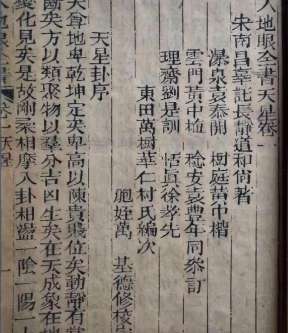 入地眼全書天星卷
宋南昌辜託長靜道和尚著
瀑泉袁泰開 樹庭黃中楷
雲門黃中 稔安袁豊年同叅訂
理齋劉是訓 恬眞徐孝先
東田萬樹華仁村氏編次
胞姪萬 基德修校
天星卦序
天尊地卑乾坤定矣卑高以陳貴賤位矣動靜有常
斷矣方以類聚物以羣分吉凶生矣在天成象在地
變化見矣是故剛柔相摩八卦相盪一陰一陽
卷一天星 一